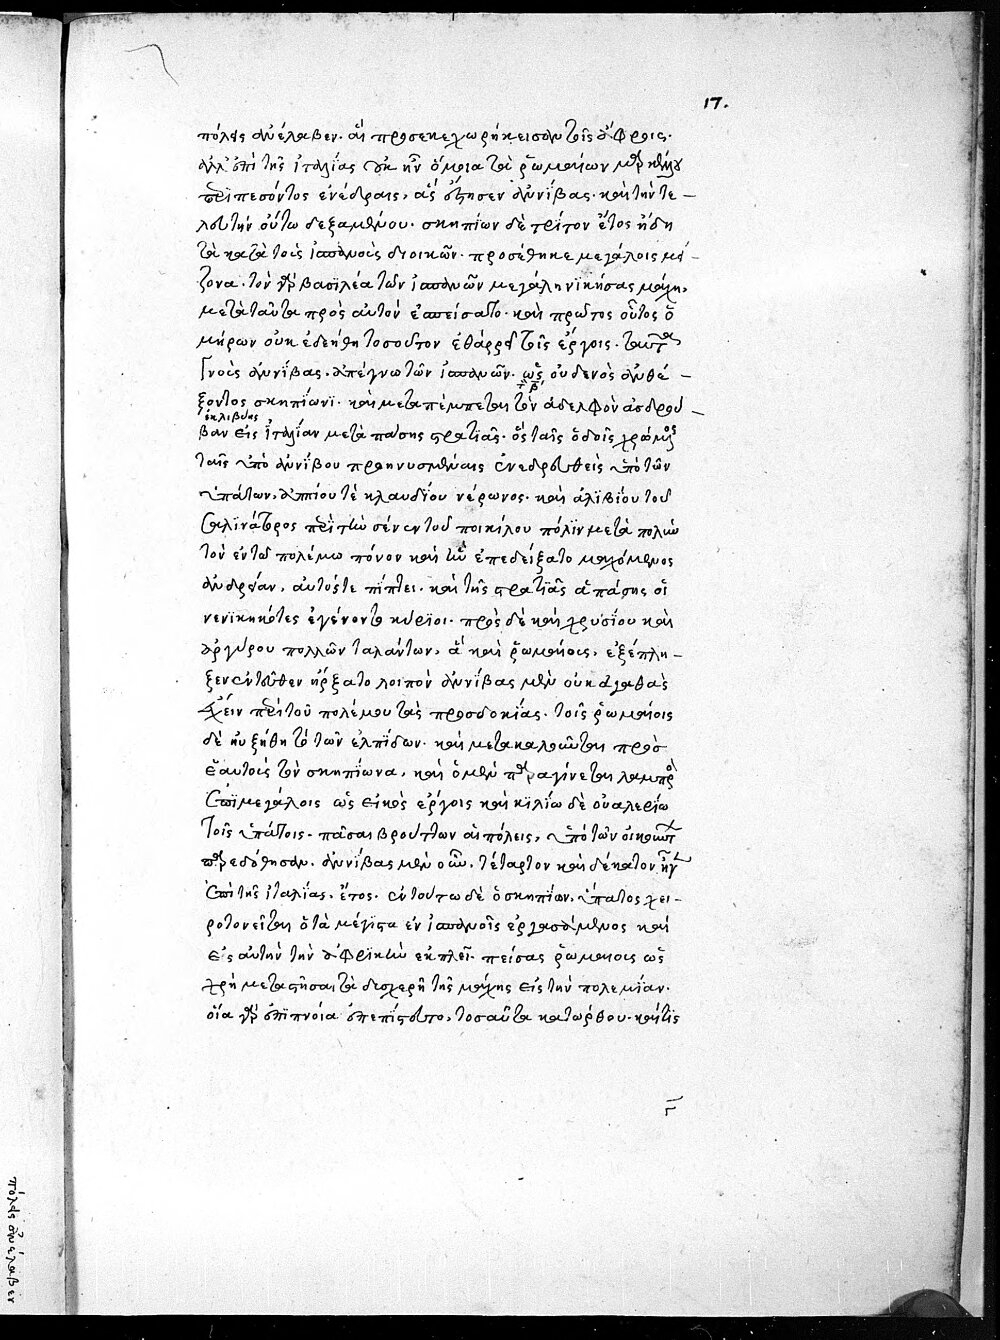 17.
πόλεις ἀνέλαβεν. αἳ προσεκεχωρήκεισαν τοῖς ἄφροις.
ἀλλ' ἐπὶ τῆς ἰταλίας οὐκ ἦν ὅμοια τὰ ῥωμαίων
περιπεσόντος ἐνέδραις, ἃς ἔστησεν ἀννίβας. καὶ τὴν τε-
λευτὴν οὕτω δεξαμένου. σκηπίων δὲ τρίτον ἔτος ἤδη
τὰ κατὰ τοὺς ἱσπανοὺς διοικῶν. προσέθηκε μεγάλοις μεί-
ζονα. τὸν γὰρ βασιλέα τῶν ἱσπανῶν μεγάλη νικήσας μάχη,
μετὰ ταῦτα πρὸς αὐτὸν ἐσπείσατο. καὶ πρῶτος οὗτος ὁ
μήρων οὐκ ἐδεήθη τοσοῦτον ἐθάρρει τοῖς ἔργοις. ταῦτα
γνοὺς ἀννίβας. ἀπέγνω τῶν ἱσπανῶν. ὡς οὐδενὸς ἀνθέ-
ξοντος σκηπίωνι. καὶ μεταπέμπεται τὸν ἀδελφὸν ἀσδρού-
ἐκ λιβύης
βαν εἰς ἰταλίαν μετὰ πάσης στρατιᾶς. ὃς ταῖς ὁδοῖς χρώμενος
ταῖς ὑπὸ ἀννίβου προηνυσμέναις ἐνεδρευθεὶς ὑπὸ τῶν
ὑπάτων, ἀππίου τὲ κλαυδίου νέρωνος. καὶ λιβίου τοῦ
σαλινάτορος περὶ τὴν σένεν τοῦ πικίλου πόλιν μετὰ πολὺν
τὸν ἐν τῷ πολέμω πόνον καὶ ἣν ἐπεδείξατο μαχόμενος
ἀνδρείαν, αὐτός τε πίπτει. καὶ τῆς στρατιᾶς ἁπάσης οἱ
νενικηκότες ἐγένοντο κύριοι. πρὸς δὲ καὶ χρυσίου καὶ
ἀργύρου πολλῶν ταλάντων, ἃ καὶ ῥωμαίοις, ἐξέπλη-
ξεν ἐντεῦθεν ἤρξατο λοιπὸν ἀννίβας μὲν οὐκ ἀγαθὰς
ἔχειν περὶ τοῦ πολέμου τὰς προσδοκίας. τοῖς ῥωμαίοις
δὲ ηὐξήθη τὸ τῶν ἐλπίδων. καὶ μετακαλοῦνται πρὸς
ἑαυτοὺς τὸν σκηπίωνα, καὶ ὁ μὲν παραγίνεται λαμπρὸς
ἐπὶ μεγάλοις ὡς εἰκὸς ἔργοις καὶ κιλίω δὲ οὐαλερίω
τοῖς ὑπάτοις. πᾶσαι βρουττίων αἱ πόλεις, ὑπὸ τῶν οἰκούντων
παρεδόθησαν. ἀννίβας μὲν οὖν. τέταρτον καὶ δέκατον ἦγεν
ἐπὶ τῆς ἰταλίας. ἔτος. ἐν τούτω δὲ ὁ σκηπίων, ὕπατος χει-
ροτονεῖται ὁ τὰ μέγιστα ἐν ἱσπανοῖς ἐργασάμενος καὶ
εἰς αὐτὴν τὴν ἀφρικὴν ἐκπλεῖ. πείσας ῥωμαίους ὡς
χρὴ μεταστῆσαι τὰ δυσχερῆ τῆς μάχης εἰς τὴν πολεμίαν.
οἷα γὰρ ἐπιπνοία ὑπεπίστευτο, τοσαῦτα κατώρθου. καὶ τίς
πόλεις ἀνέλαβεν